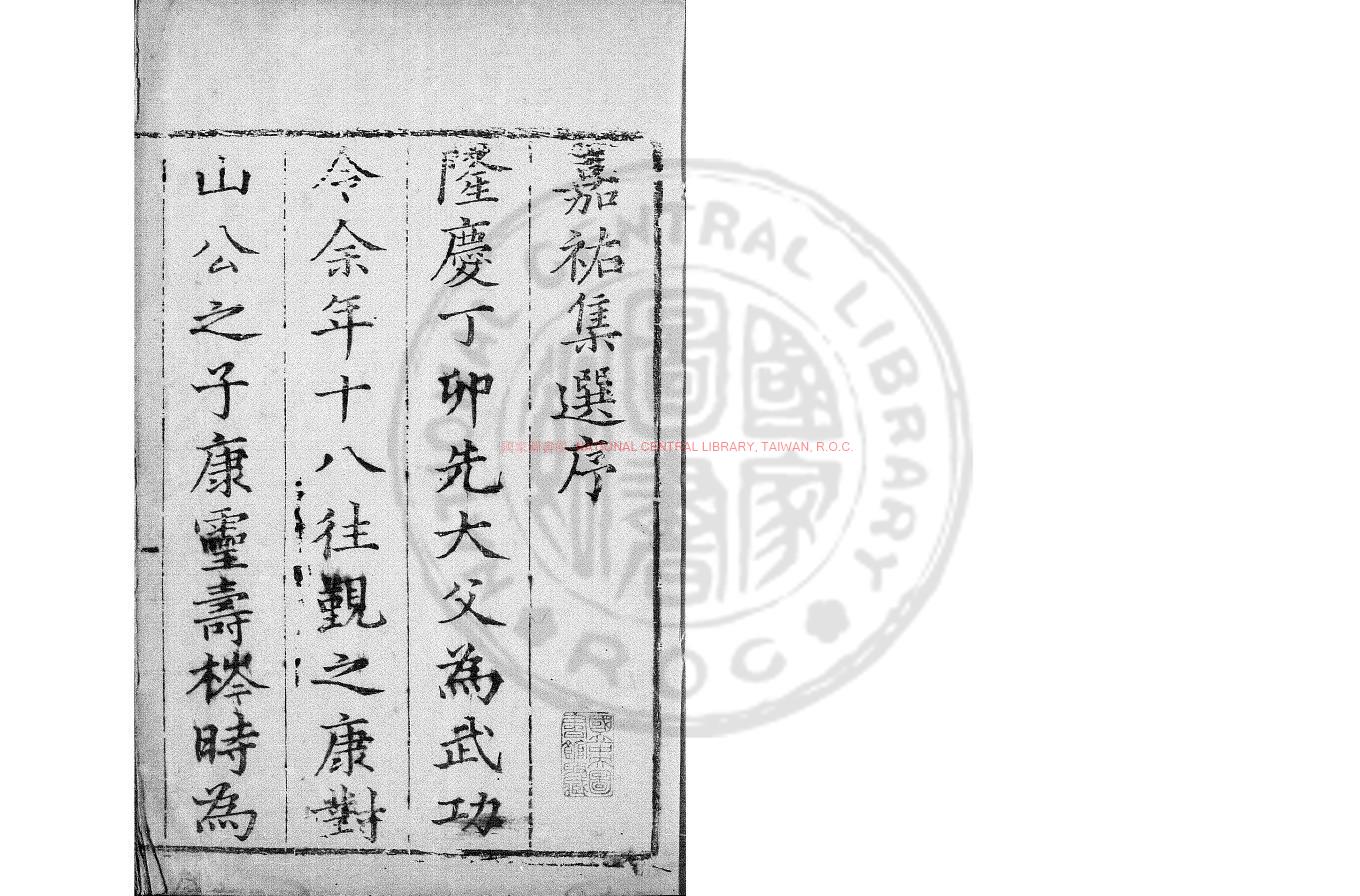 嘉祐集選序
隆慶丁卯先大父為武功
令余年十八往覲之康對
山公之子康靈壽梣時為
國家圖書館藏
國家圖書館 NATIONAL CENTRAL LIBRARY, TAIWAN, R.O.C.
NATIONAL CENTRAL LIBRARY
ROC